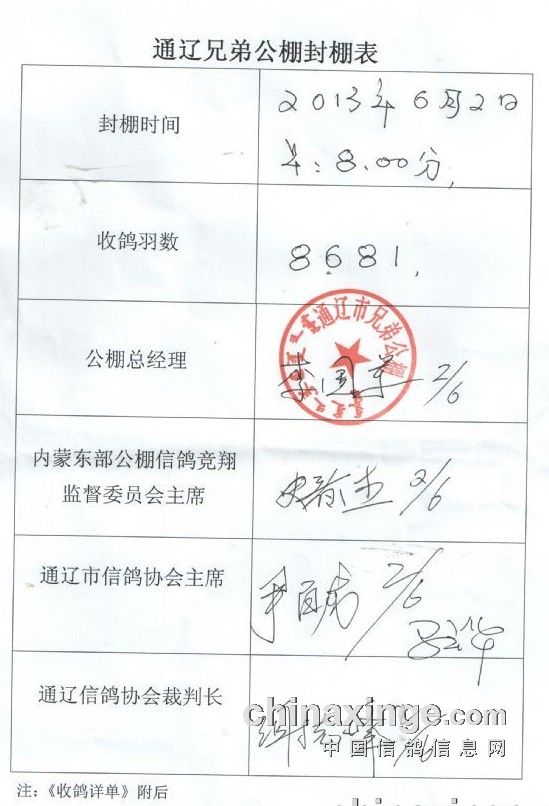 通辽兄弟公棚封棚表
封棚时间
2013年6月2日
8.00分
收鸽羽数
8681
公棚总经理
通辽市兄弟公棚
2/6
内蒙东部公棚信鸽竞翔
监督委员会主席
2/6
通辽市信鸽协会主席
2/6
通辽信鸽协会裁判长
chinaxinge.com
中国信鸽信息网
注：《收鸽详单》附后